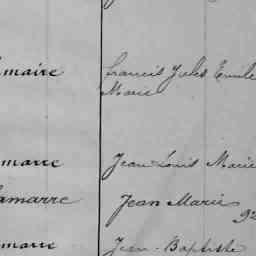 maire Francis Jules Emile
Marie
marre Jean Louis Marie
amarre Jean Marie
92
marre Jean-Baptiste